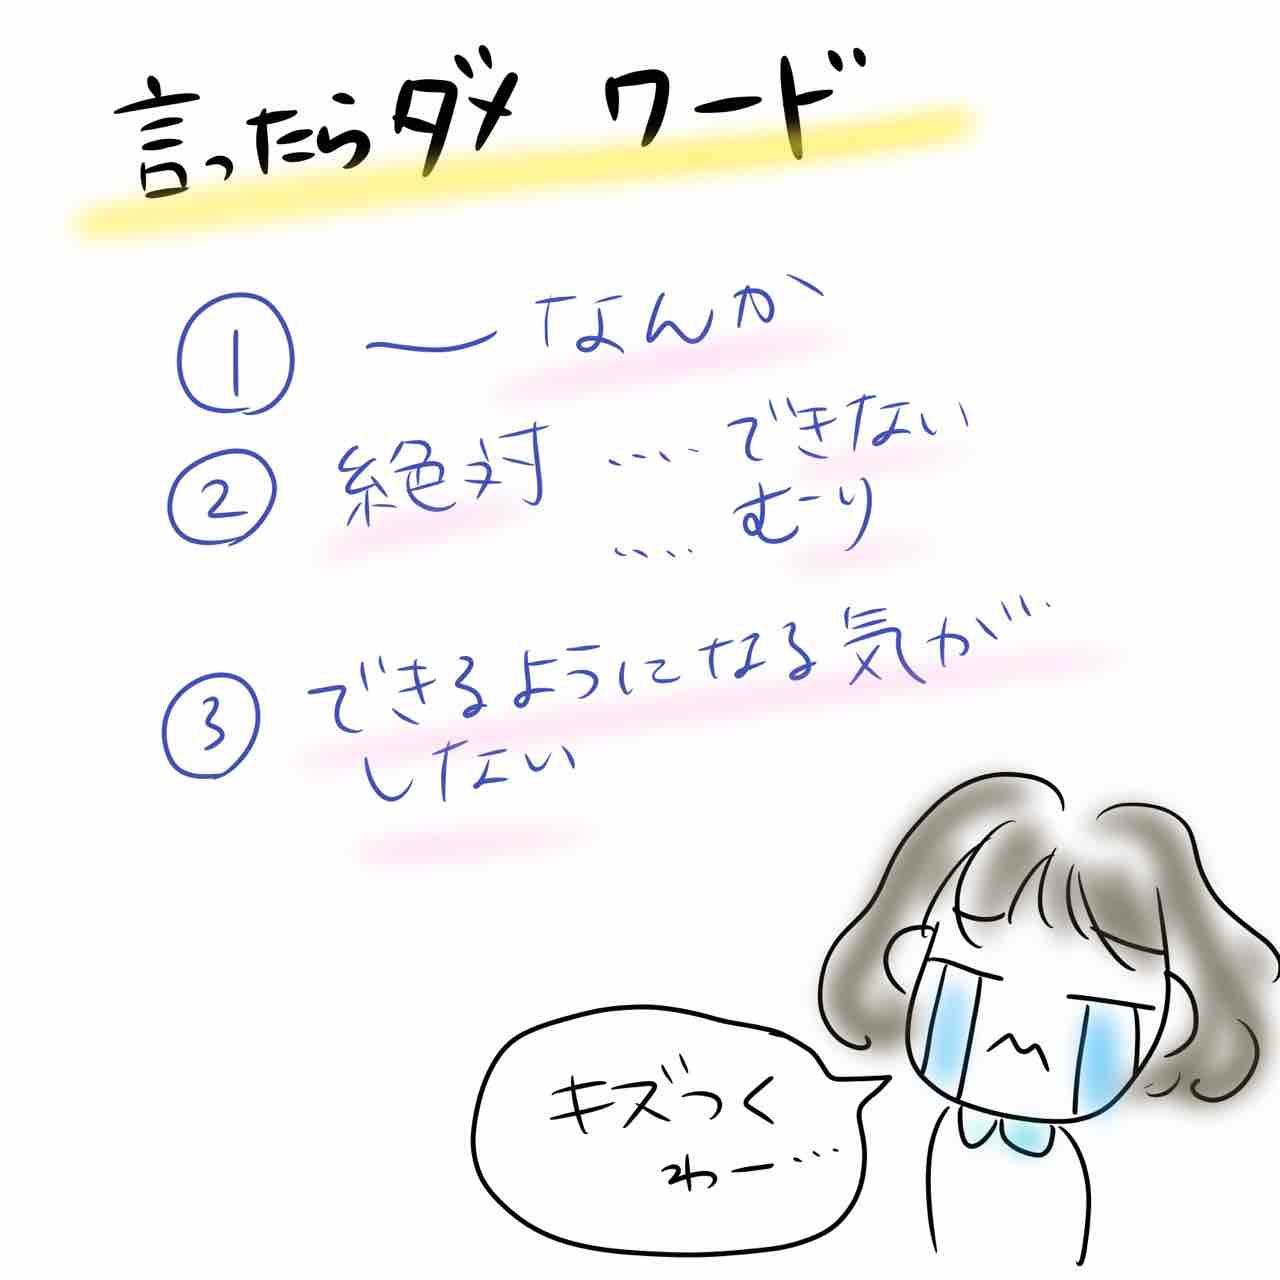 言ったらダメ ワード
① 〜なんか
② 絶対 ‥‥できない
‥‥むーり
③ できるようになる気が…
しない
キズつく
わー…